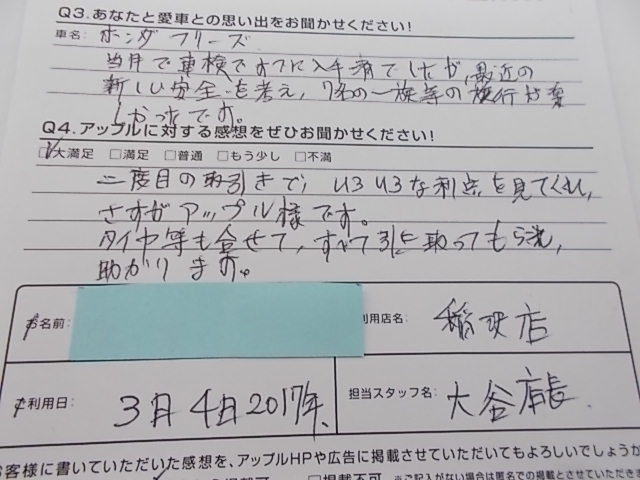 Q3.あなたと愛車との思い出をお聞かせください!
車名: ホンダ フリーズ
当月で車検ですでに入手済でしたが、最近の
新しい安全を考え、7名の一族等の旅行が楽
しかったです。
Q4.アップルに対する感想をぜひお聞かせください!
□大満足 □満足 □普通 □もう少し □不満
二度目の取引きで、いろいろな利点を見てくれ、
さすがアップル様です。
タイヤ等も合せて、すべて引き取ってもらえ、
助かります。
お名前:
利用店名: 稲沢店
ご利用日: 3月4日2017年、
担当スタッフ名: 大谷店長
お客様に書いていただいた感想を、アップルHPや広告に掲載させていただいてもよろしいでしょうか
□掲載不可 ※ご記入がない場合は匿名での掲載とさせていただきます